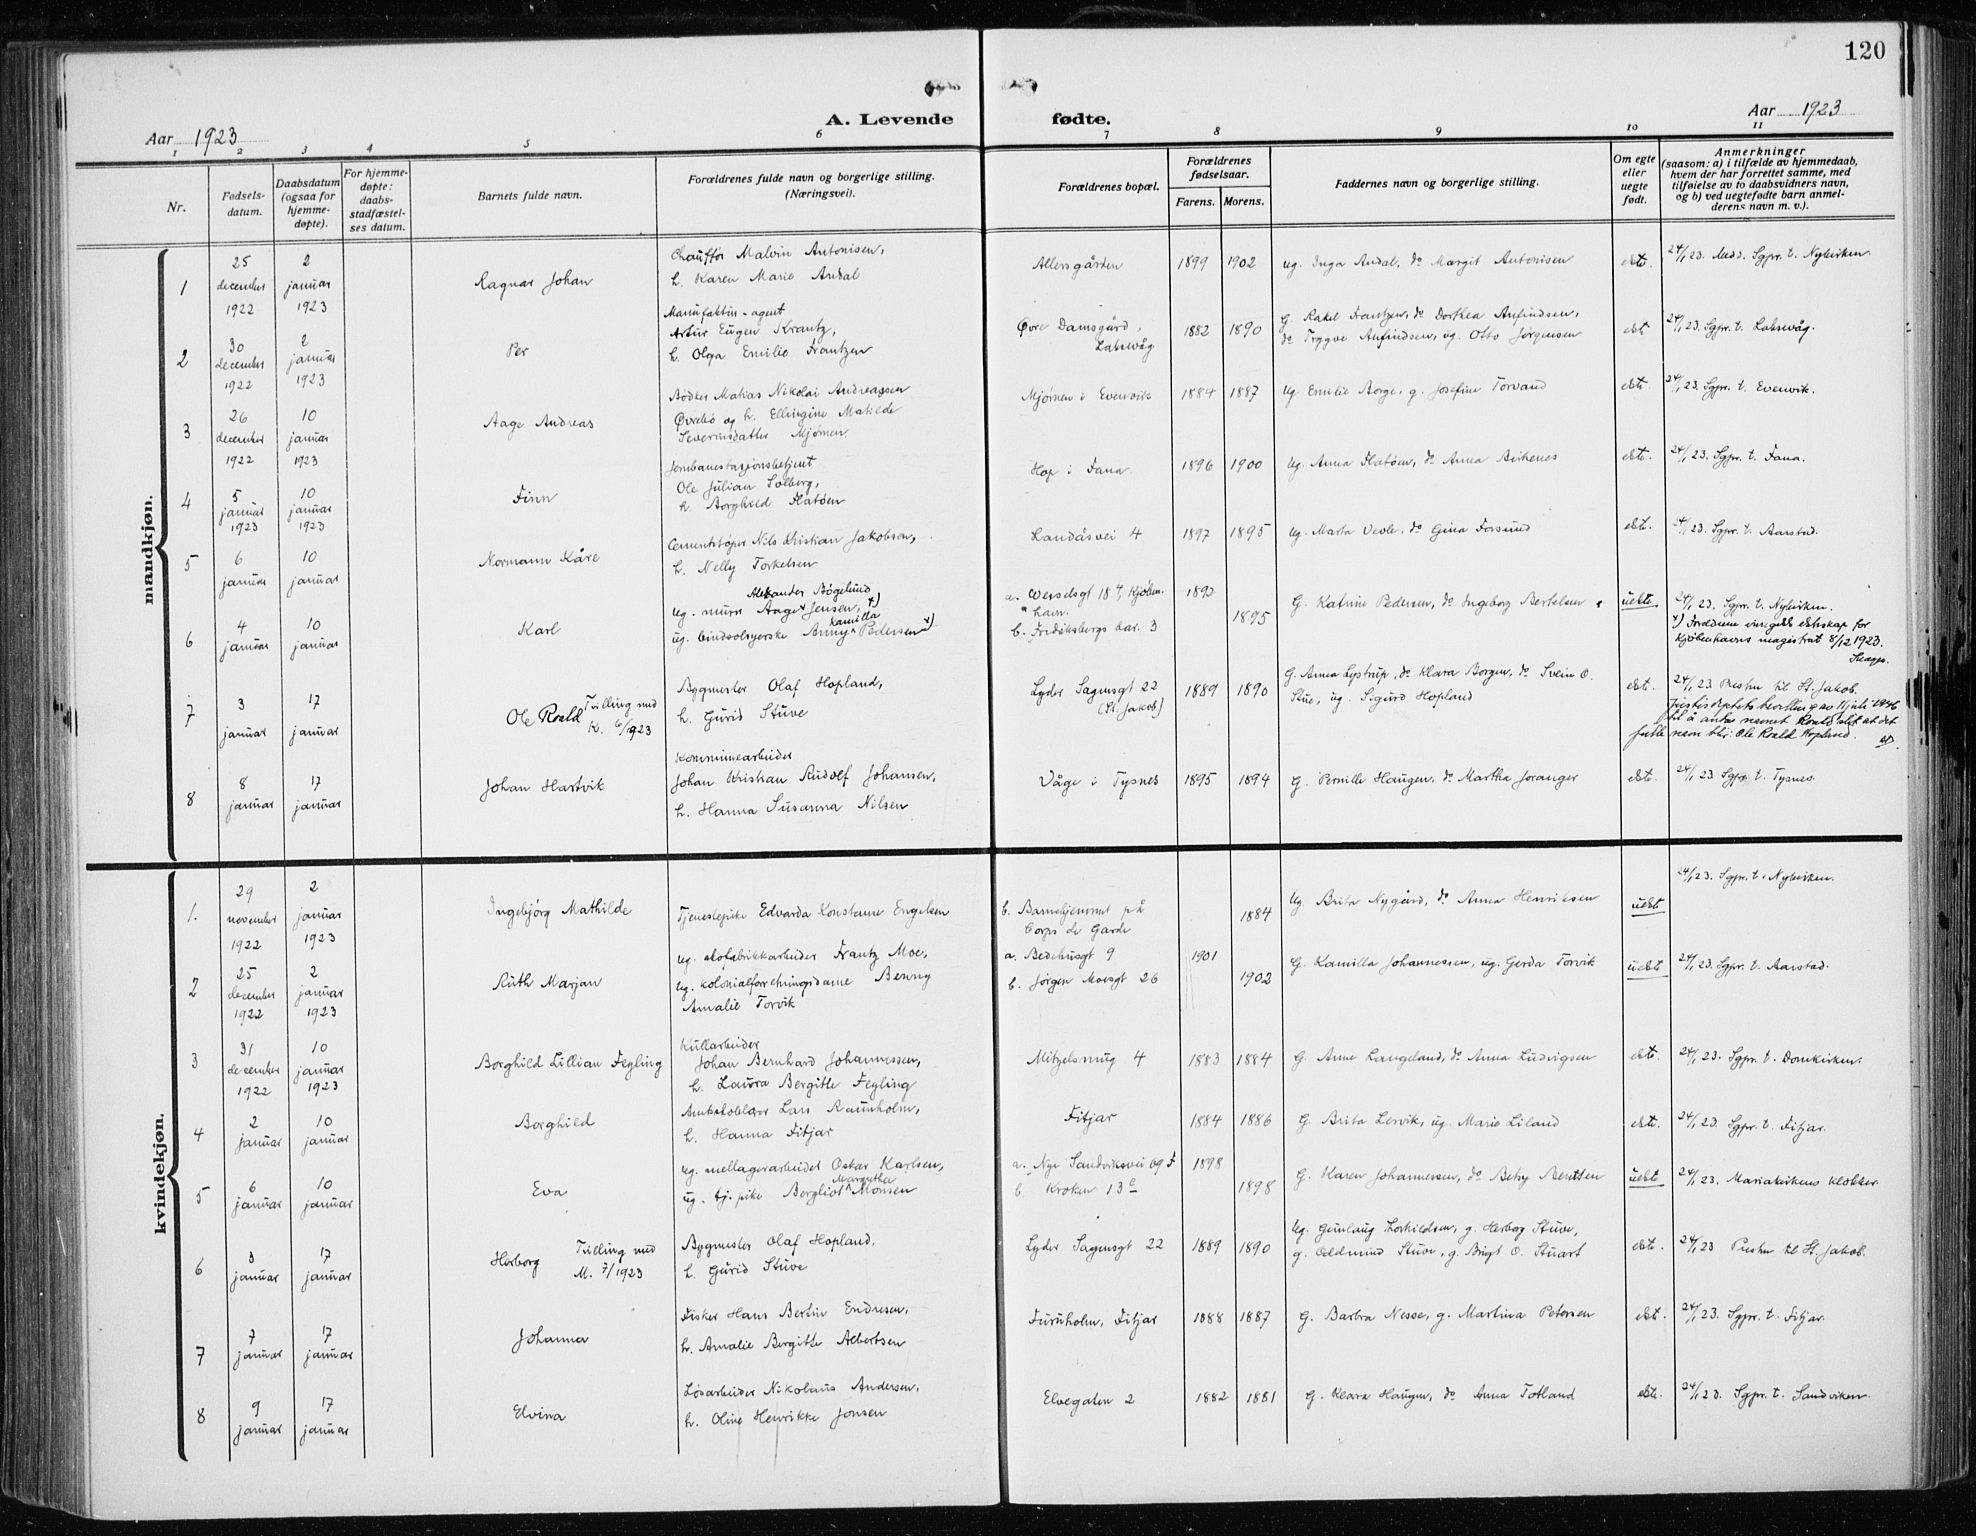 120
A. Levende fødte.
Aar 1923
Aar 1923
1 2 3 4 5 6 7 8 9 10 11
Nr.
Fødsels-
datum.
Daabsdatum
(ogsaa for
hjemme-
døpte).
For hjemme-
døpte:
daabs-
stadfæstel-
ses datum.
Barnets fulde navn.
Forældrenes fulde navn og borgerlige stilling.
(Næringsvei).
Forældrenes bopæl.
Forældrenes
fødselsaar.
Farens. Morens.
Faddernes navn og borgerlige stilling.
Om egte
eller
uegte
født.
Anmerkninger
(saasom: a) i tilfælde av hjemmedaab,
hvem der har forrettet samme, med
tilføielse av to daabsvidners navn,
og b) ved uegtefødte barn anmel-
derens navn m. v.).
mandkjøn.
1
25
december
1922
2
januar
1923
Ragnar Johan
Chauffør Malvin Antonisen,
h. Karen Marie Andal
Allersgården
1899 1902
Ug. Inga Andal, do Margit Antonisen
ekte.
24/1 23. Medd. Sgpr. t. Nykirken.
2
30
december
1922
2
januar
1923
Per
Manufaktur-agent
Artur Eugen Krantz,
h. Olga Emilie Frantzen
Øvre Damsgård,
Laksevåg
1882 1890
G. Rakel Frantzen, do Dorthea Anfindsen,
do Trygve Anfindsen, ug. Otto Jørgensen
ekt.
24/1 23. Sgpr. t. Laksevåg.
3
26
december
1922
10
januar
1923
Aage Andreas
Bødker Matias Nikolai Andreassen
Øvrebø og h. Ellingine Matilde
Severinsdatter Mjømen
Mjømen i Evenvik
1884 1887
Ug Emilie Borge, g. Josefine Torvand
ekte.
24/1 23. Sgpr. t. Evenvik.
4
5
januar
1923
10
januar
1923
Finn
Jernbanestasjonsbetjent
Ole Julian Solberg,
h. Borghild Flatøen
Hop i Fana.
1896 1900
Ug. Anna Flatøen, do Anna Birkenes
ekte.
24/1 23. Sgpr. t. Fana.
5
6
januar
10
januar
Normann Kåre
Cementstøper Nils Kristian Jakobsen,
h. Nelly Torkelsen
Landåsvei 4
1897 1895
Ug. Marta Vedle, do Gina Forsund
ekt.
24/1 23. Sgpr. t. Aarstad.
6
4
januar
10
januar
Karl
Alexander Bøgelund
Ug. murer Aage Jensen, x)
kamilla
ug. bindsolsyerske Anny Pedersen x)
a. Versdsgt 18 4, Kjøben-
havn.
b. Fredriksbergs bar. 3
1892
1895
G. Katrine Pedersen, do Ingeborg Bertelsen
uekte
24/1 23. Sgpr. t. Nykirken.
x) Foreldrene inngikk ekteskap for
Kjøbenhavns magistrat 8/12 1923.
7
3
januar
17
januar
Ole Roald
Tvilling med
K. 6/1923
Bygmester Olaf Hopland,
h. Gurid Stuve
Lyder Sagensgt 22
(St. Jakob)
1889 1890
G. Anna Lystrup, do Klara Borgen, do Svein O.
Stue, ug. Sigurd Hopland
ekt.
24/1 23 Presten til St. Jakob.
Justisdeptets bevilling av 11 juli 1946
til å anta navnet Roald slik at det
fulle navn blir: Ole Roald Hopland.
8
8
januar
17
januar
Johan Hartvik
Kommunearbeider
Johan Kristian Rudolf Johansen,
h. Hanna Susanna Nilsen
Våge i Tysnes
1895 1894
G. Pernille Haugen, do Martha Joranger
ekt.
24/1 23 Sgpr. t. Tysnes.
kvindekjøn.
1.
29
november
1922
2
januar
1923
Ingebjörg Mathilde
Tjenestepike Edvarda Konstanse Engelsen
b. Barnehjemmet på
Corps de Garde
1884
Ug. Brita Nygård, do Anna Henriksen
uekt
24/1 23. Sgpr. t. Nykirken.
2
25
december
1922
2
januar
1923
Ruth Marjan
Ug. skofabrikkarbeider Frantz Moe,
Ug. kolonialforretningsdame Benny
Amalie Torvik
a. Bedehusgt 9
b. Jörgen Moesgt 26
1901
1902
G. Kamilla Johannessen, ug. Gerda Torvik
uekte
24/1 23. Sgpr. t. Aarstad.
3
31
december
1922
10
januar
1923
Borghild Lillian Fegling
Kullarbeider
Johan Bernhard Johannessen,
h. Laura Bergitte Fegling
Mitzelsmug 4
1883 1884
G. Anne Langeland, do Anna Ludvigsen
ekt.
24/1 23. Sgpr. t. Domkirken.
4
2
januar
10
januar
Borghild
Amtsskolelærer Lars Raunholm,
h. Hanna Fitjar
Fitjar
1884 1886
G. Brita Lervik, ug. Marie Liland
ekte.
24/1 23. Sgpr. t. Fitjar.
5
6
januar
10
januar
Eva
Ug. mellagerarbeidet Oskar Karlsen,
Margretha
ug. tj. pike Bergliot Monsen
a. Nye Sandviksvei 69 F
b. Kroken 13 c
1898
1898
G. Karen Johannessen, do Betsy Bentsen
uekte
24/1 23. Mariakirkens klokker.
6
3
januar
17
januar
Herborg
Tvilling med
M. 7/1923
Bygmester Olaf Hopland,
h. Gurid Stuve
Lyder Sagensgt 22
1889 1890
Ug. Gunlaug Thorkildsen, g. Herborg Stuve,
g. Oddmund Stuve, g. Brigt O. Stuart
ekt.
24/1 23 Presten til St. Jakob.
7
7
januar
17
januar
Johanna
Fisker Hans Bertin Endresen,
h. Amalie Bergitte Albertsen
Furuholm, Fitjar
1888 1887
G. Barbra Nesse, g. Martina Petersen
ekt.
24/1 23. Sgpr. t. Fitjar.
8
9
januar
17
januar
Elvina
Løsarbeider Nikolaus Andersen,
h. Oline Henrikke Jonsen
Elvegaten 2
1882 1881
G. Klara Haugen, do Anna Totland
ekt.
24/1 23. Sgpr. t. Sandviken.